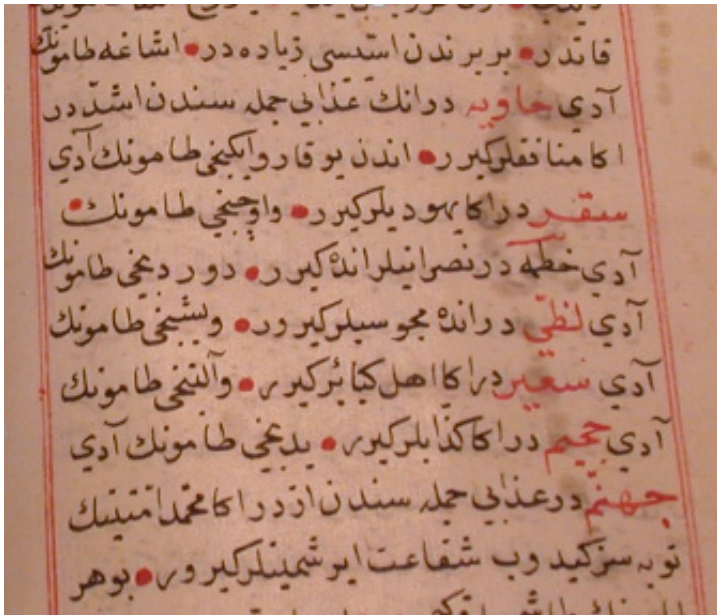 قاتدر • بربرندن استسی زیاده در • اشاغه طامونك
آدي هاویه در انك عذابی جمله سندن اشدّ در
اكا منافقلر كیرر • اندن یوقارو ایكنجی طامونك آدي
سقر در اكا یهودیلر كیرر • واوچنجی طامونك •
آدي حطمه در نصرانیلر انده كیرر • دوردنجی طامونك
آدي لظی در انده مجوسیلر كیرور • وبشنجی طامونك
آدي سعیر در اكا اهل كبائر كیرر • وآلتنجی طامونك
آدي جحیم در اكا كذابلر كیرر • یدنجی طامونك آدي
جهنّم در عذابی جمله سندن از در اكا محمد امتینك
توبه سز كیدوب شفاعت ایرشمینلر كیرور • بو هر